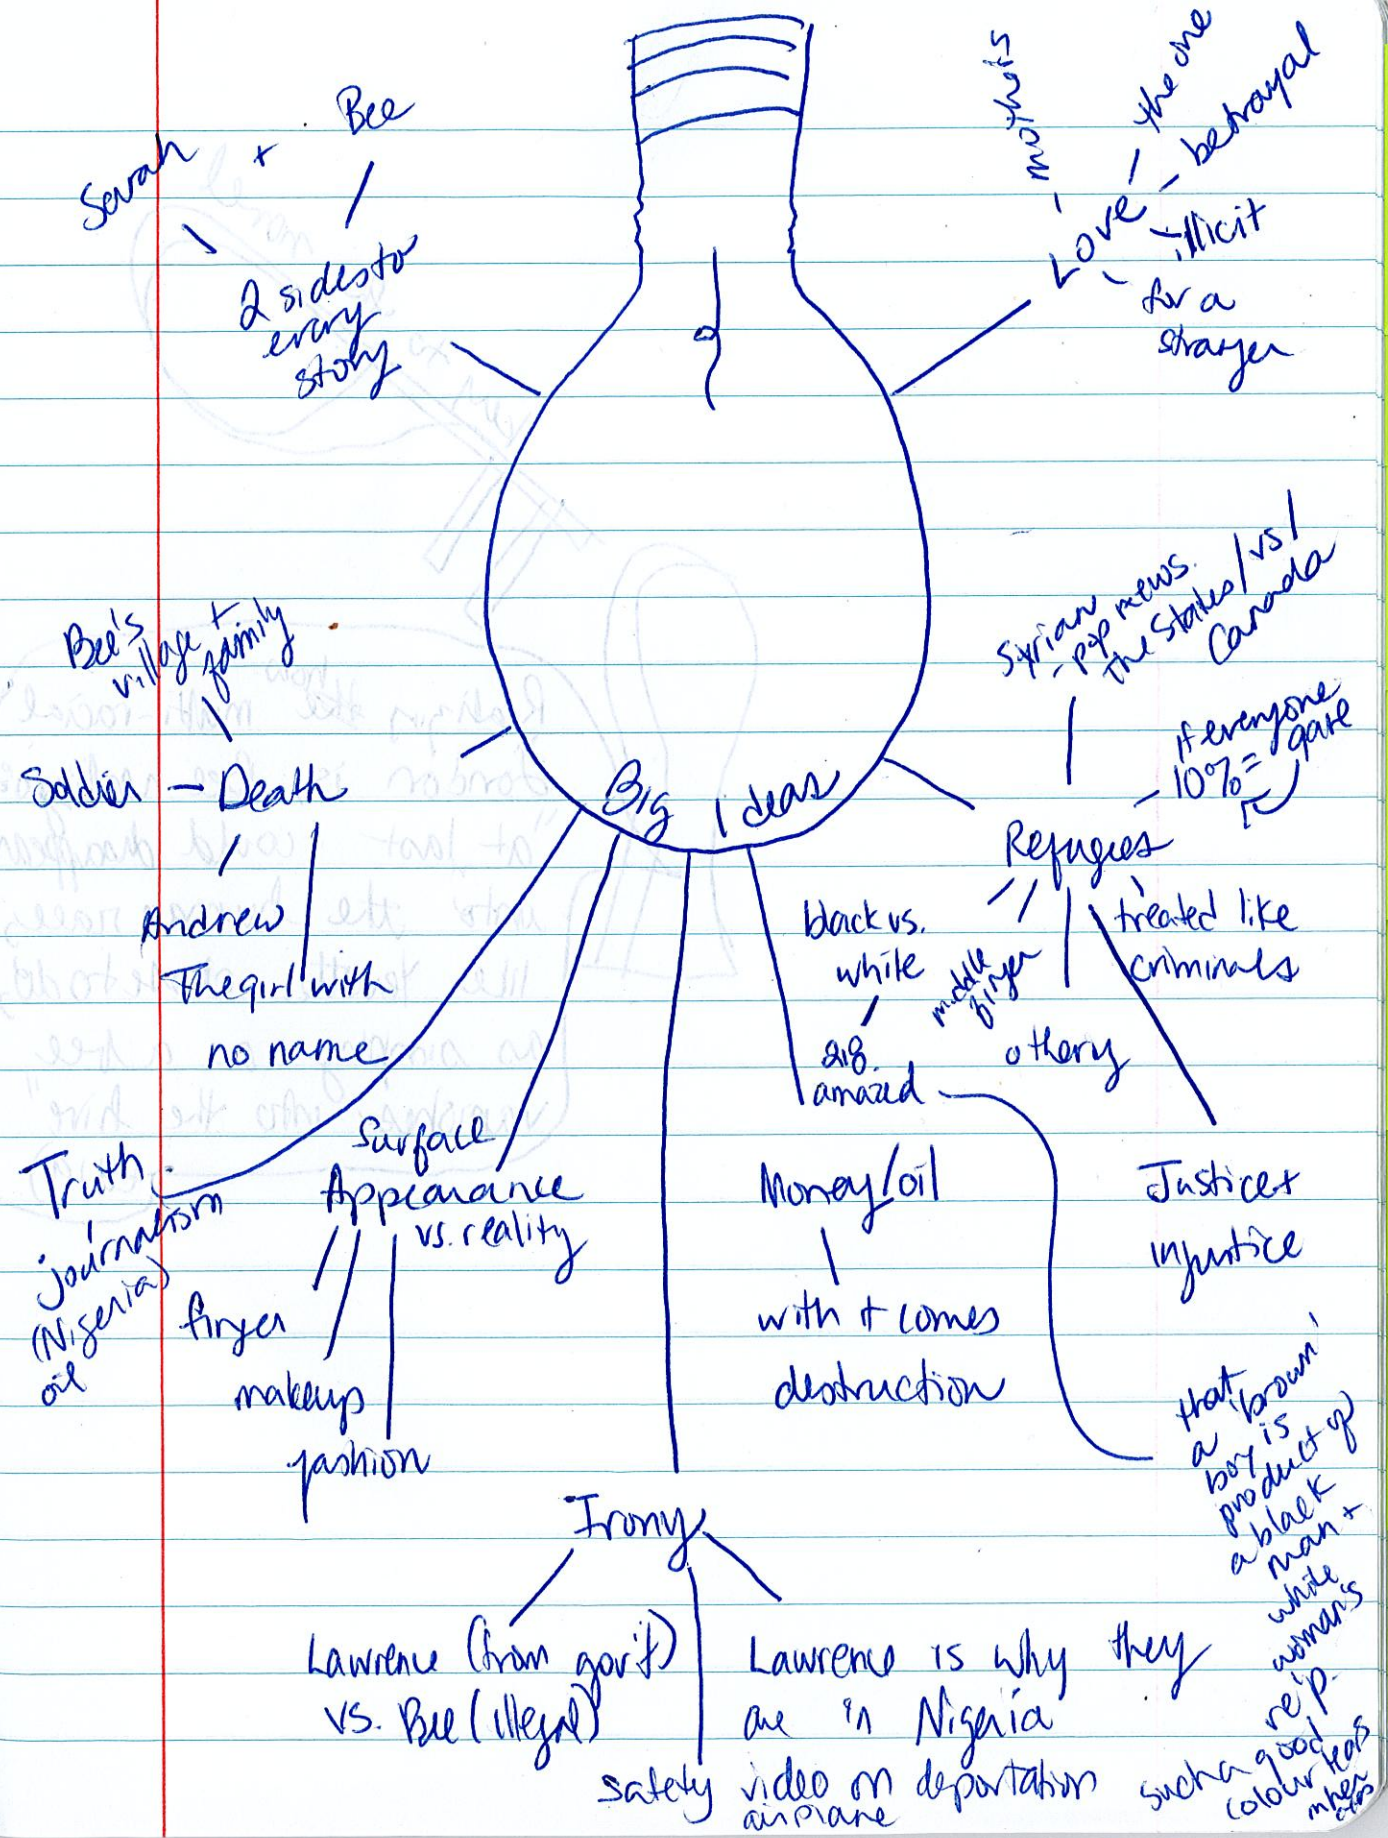 Sarah + Bee
2 sides to
every
story
mother's
the one
betrayal
Love
illicit
for a
stranger
Syrian
- pop news.
the States / vs /
Canada
if everyone
10% = gave
Refugees
treated like
criminals
middle
finger
othery
Justice +
injustice
Bee's
village +
family
Soldier - Death
Andrew
The girl with
no name
Big Ideas
black vs.
white
amazed
that
a 'brown'
boy is
product of
a black
man +
white
woman's
rep.
such a good
colour
Money/oil
with it comes
destruction
Truth
journalism
(Nigeria)
oil
Surface
Appearance
vs. reality
finger
makeup
fashion
Irony
Lawrence (from gov't)
vs. Bee (illegal)
Lawrence is why they
are in Nigeria
safety video on deportation
airplane